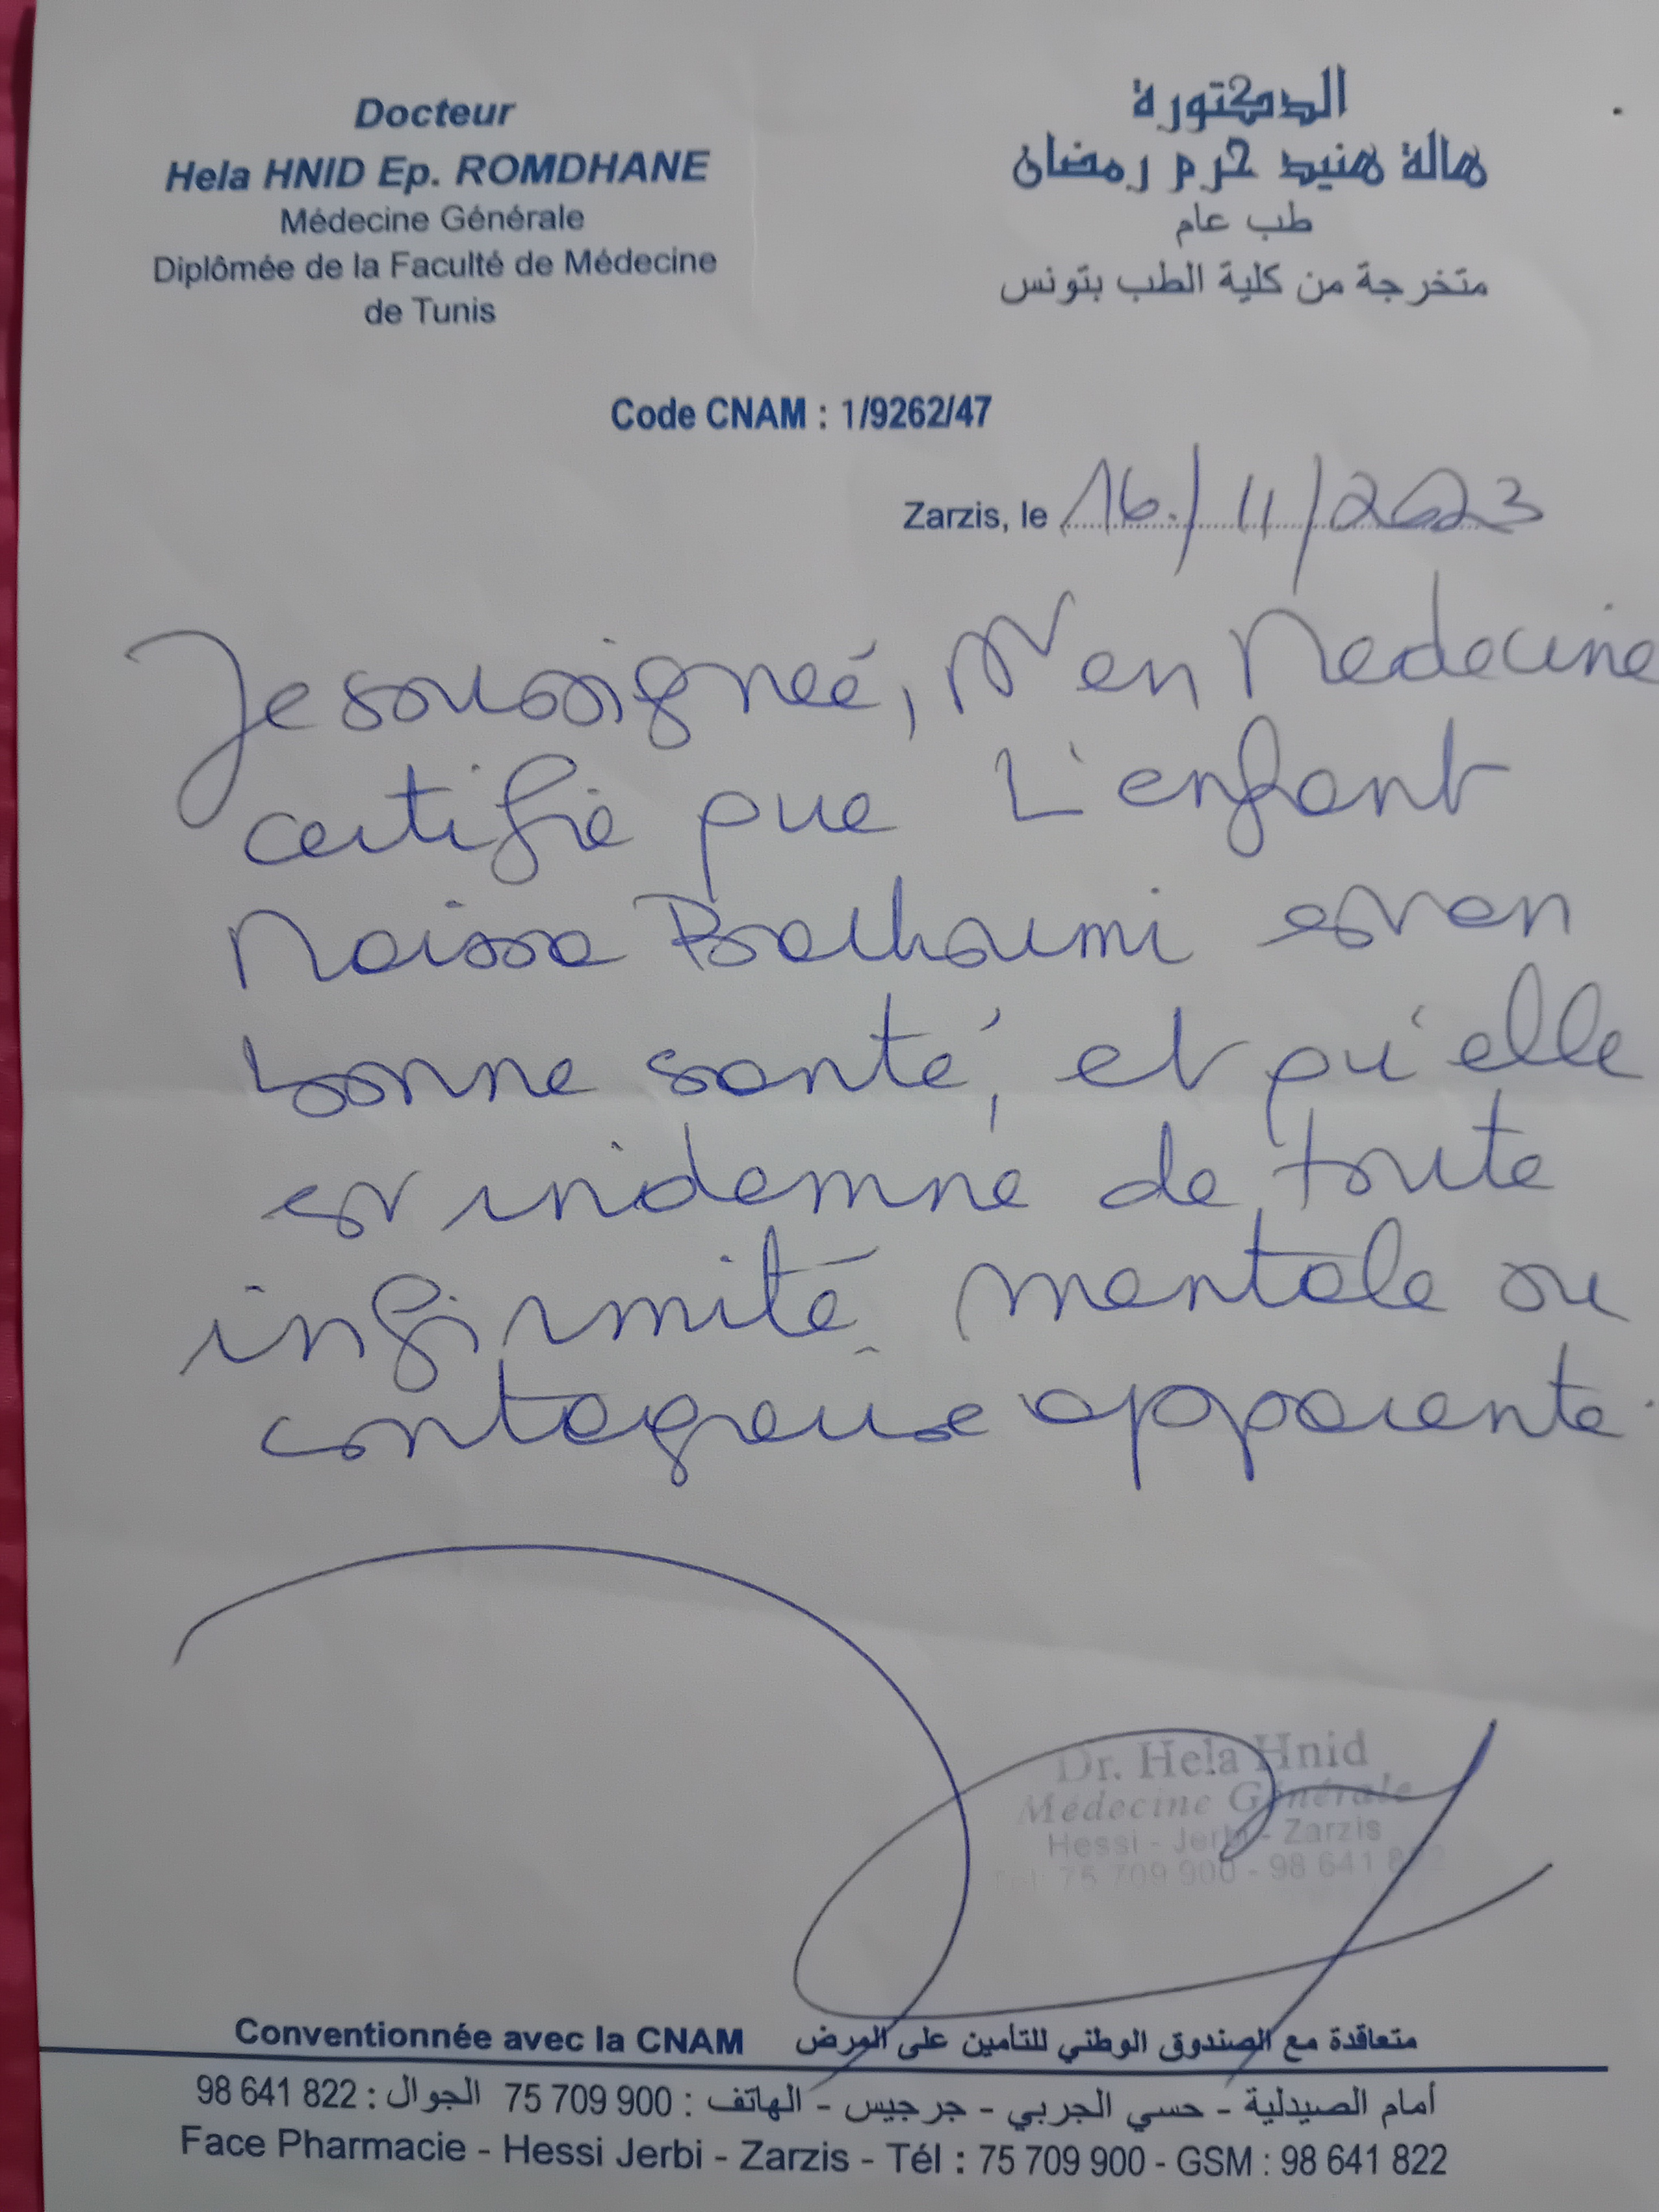 Docteur
Hela HNID Ep. ROMDHANE
Médecine Générale
Diplômée de la Faculté de Médecine
de Tunis
الدكتورة
هالة هنيد حرم رمضان
طب عام
متخرجة من كلية الطب بتونس
Code CNAM : 1/9262/47
Zarzis, le 16/11/2023
Je soussigneé, Dr en Medecine
certifie que L'enfant
est en
bonne santé, et qu'elle
est indemne de toute
infirmité mentale ou
contagieuse apparente.
Dr. Hela Hnid
Médecine Générale
Hessi - Jerbi - Zarzis
Tel: 75 709 900 - 98 641 822
Conventionnée avec la CNAM متعاقدة مع الصندوق الوطني للتأمين على المرض
أمام الصيدلية - حسي الجربي - جرجيس - الهاتف : 75 709 900 الجوال : 98 641 822
Face Pharmacie - Hessi Jerbi - Zarzis - Tél : 75 709 900 - GSM : 98 641 822